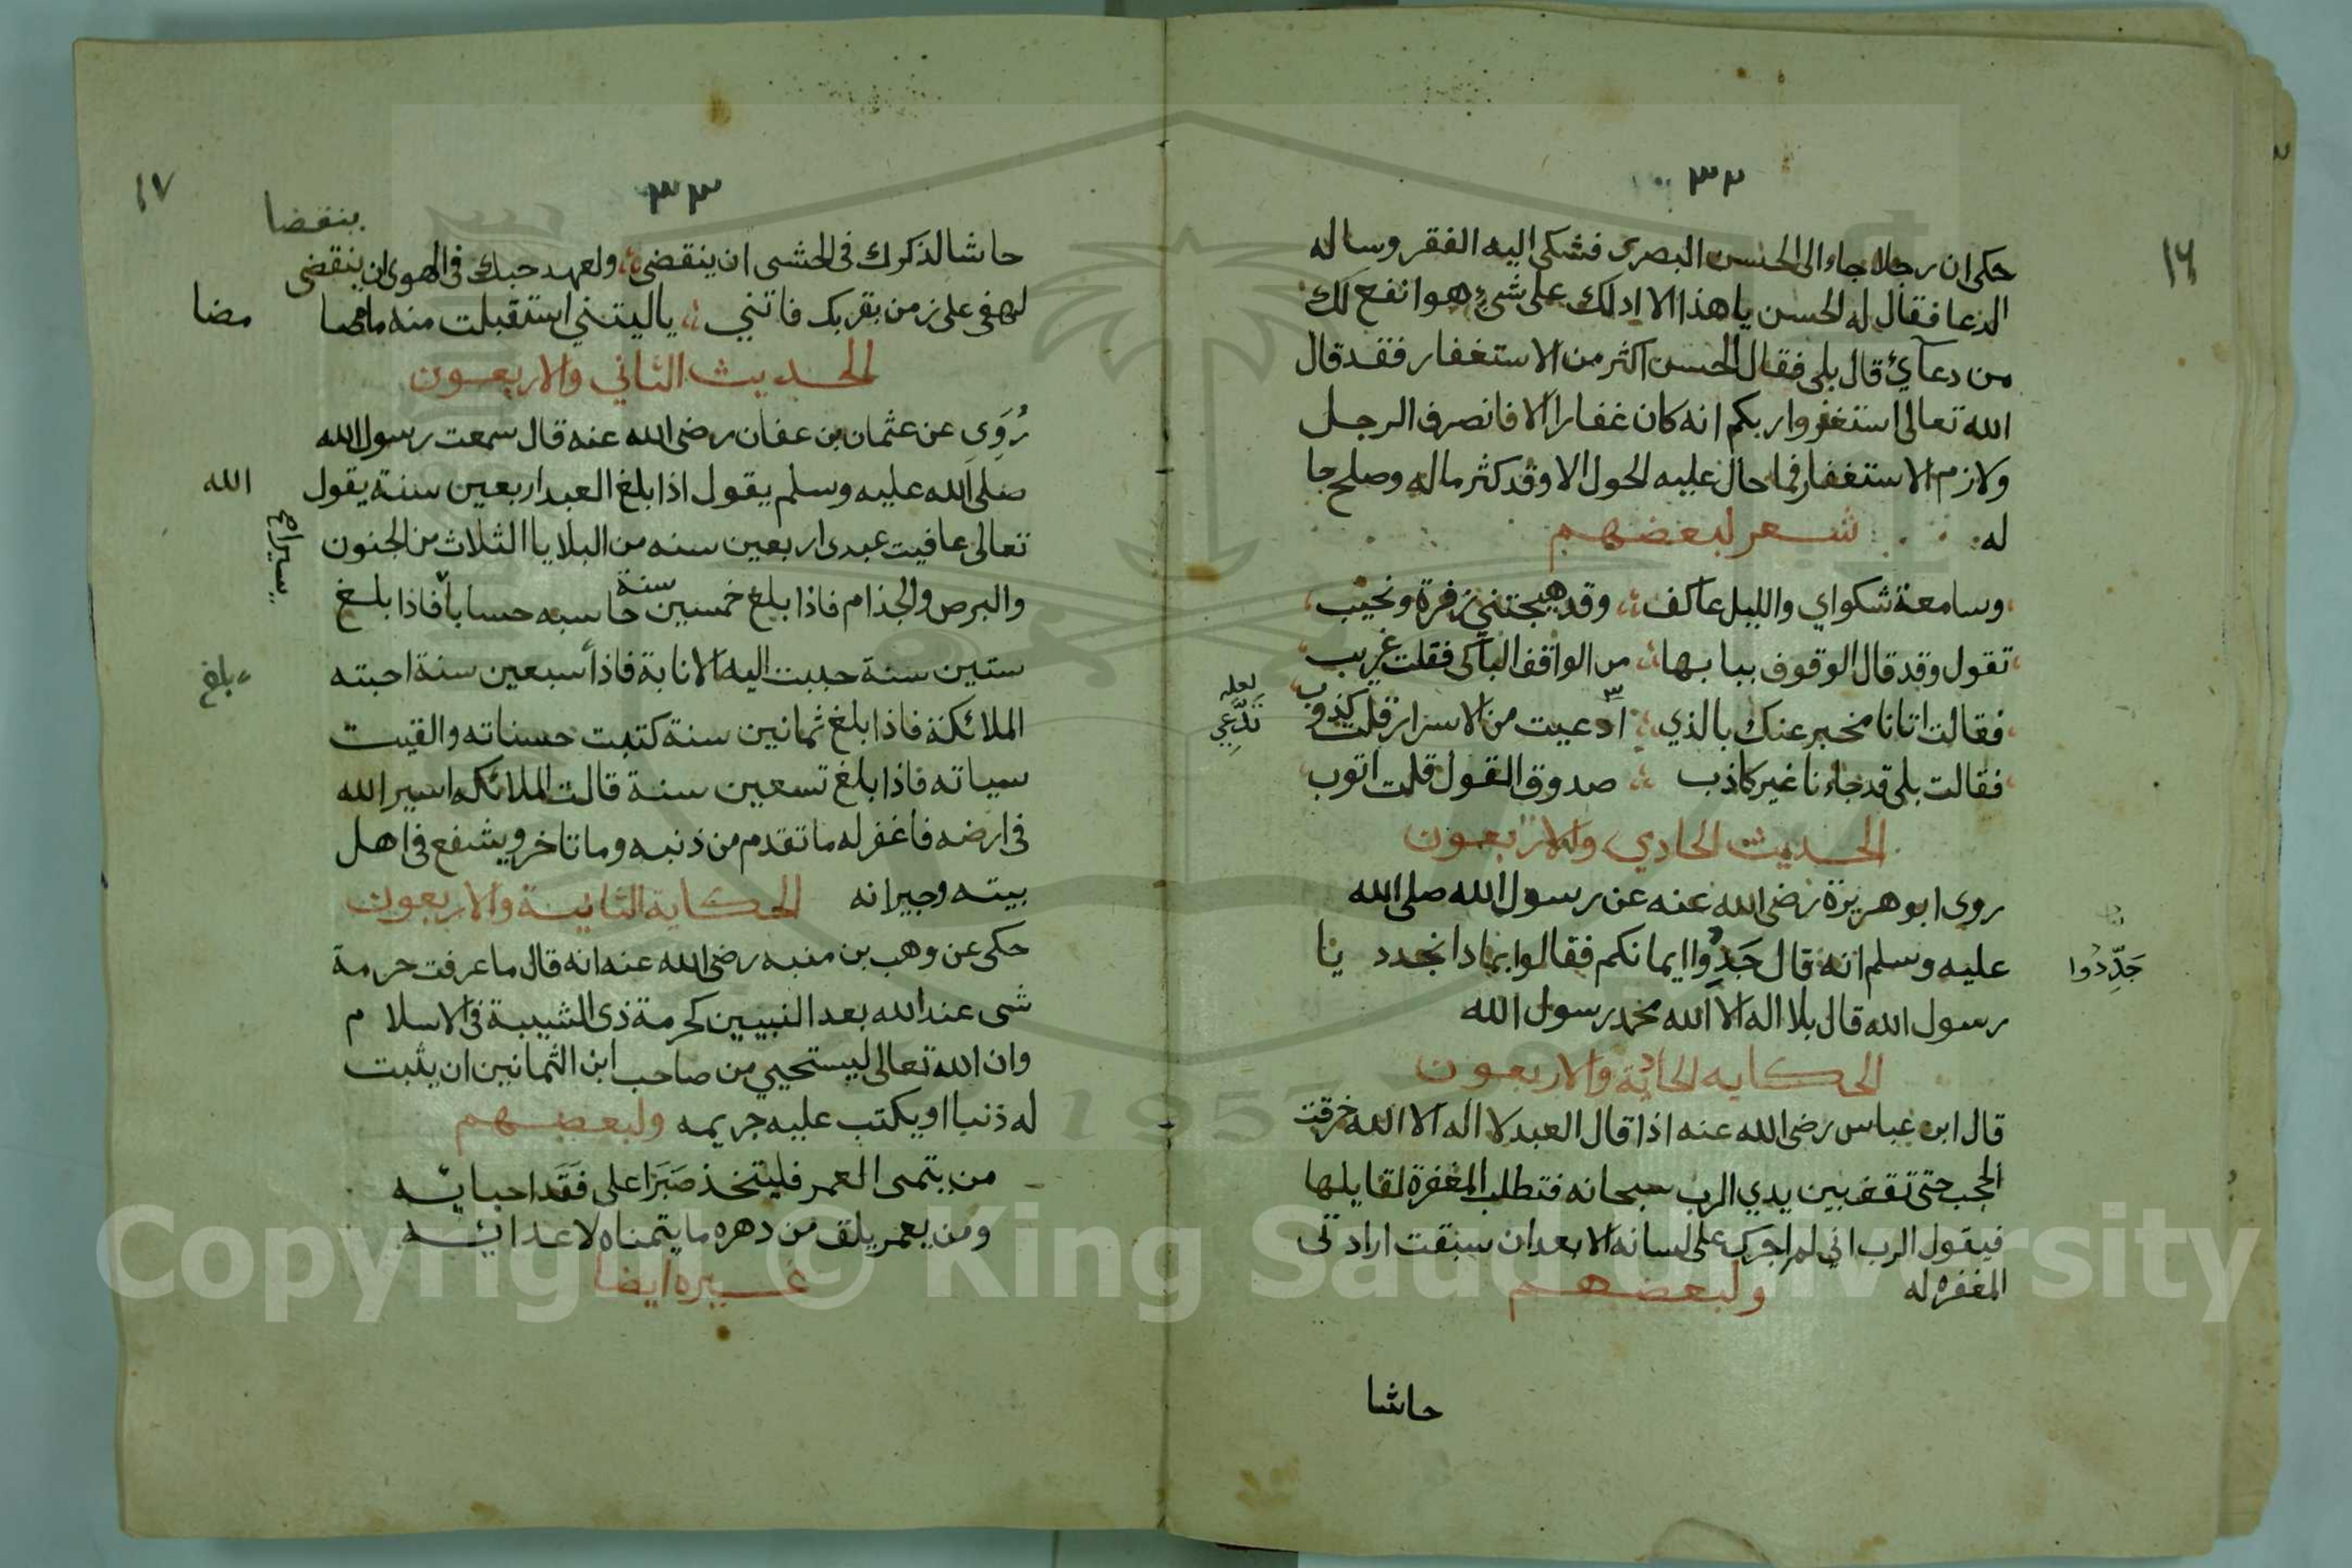 ٣٢
١٦
حكى ان رجلا جاء الى الحسن البصرى فشكى اليه الفقر وساله
الدعا فقال له الحسن يا هذا الا ادلك على شىء هو انفع لك
من دعآئ قال بلى فقال الحسن اكثر من الاستغفار فقد قال
الله تعالى استغفروا ربكم انه كان غفارا الا فانصرف الرجل
ولازم الاستغفار فما حال عليه الحول الا وقد كثر ماله وصلح حا
له شعر لبعضهم
وسامعة شكواي والليل عاكف وقد هيجتني زفرة ونحيب
تقول وقد قال الوقوف ببابها من الواقف الباكى فقلت غريب
فقالت اتانا مخبر عنك بالذي ادعيت من الاسرار قلت كذوب
لعله
تدّعي
فقالت بلى قد جاءنا غير كاذب صدوق القول قلت اتوب
الحديث الحادي والاربعون
روى ابو هريرة رضى الله عنه عن رسول الله صلى الله
عليه وسلم انه قال جَدِدُوا ايمانكم فقالوا بماذا نجدد يا
جَدِّدُوا
رسول الله قال بلا اله الا الله محمد رسول الله
الحكايه الحادية والاربعون
قال ابن عباس رضى الله عنه اذا قال العبد لا اله الا الله خرقت
الحجب حتى تقف بين يدي الرب سبحانه فتطلب المغفرة لقايلها
فيقول الرب اني لم اجرك على لسانه الا بعد ان سبقت ارادتى
المغفره له ولبعضهم
حاشا
٣٣
١٧
ينقضا
حاشا لذكرك فى الحشى ان ينقضى ولعهد حبك فى الهوى ان ينقضى
لهفى على زمن بقربك فاتني ياليتني استقبلت منه ما مضا
مضا
الحديث الثاني والاربعون
رُوِىَ عن عثمان بن عفان رضى الله عنه قال سمعت رسول الله
صلى الله عليه وسلم يقول اذا بلغ العبد اربعين سنة يقول
الله
تعالى عافيت عبدى اربعين سنه من البلايا الثلاث من الجنون
والبرص والجذام فاذا بلغ خمسين سنة حاسبه حسابا فاذا بلغ
يسيرا
ستين سنة حببت اليه الانابة فاذا سبعين سنة احبته
بلغ
الملائكة فاذا بلغ ثمانين سنة كتبت حسناته والقيت
سياته فاذا بلغ تسعين سنة قالت الملائكه اسير الله
فى ارضه فاغفر له ما تقدم من ذنبه وما تاخر ويشفع فى اهل
بيته وجيرانه الحكاية الثانية والاربعون
حكى عن وهب بن منبه رضى الله عنه انه قال ما عرفت حرمة
شى عند الله بعد النبيين كحرمة ذى الشيبة فى الاسلام
وان الله تعالى ليستحيي من صاحب ابن الثمانين ان يثبت
له ذنبا او يكتب عليه جريمه ولبعضهم
من يتمى العمر فليتخذ صَبَرَا على فَقَد احبائه
ومن يعمر يلق من دهره ما يتمناه لاعدائه
غيره ايضا
Copyright © King Saud University
1957